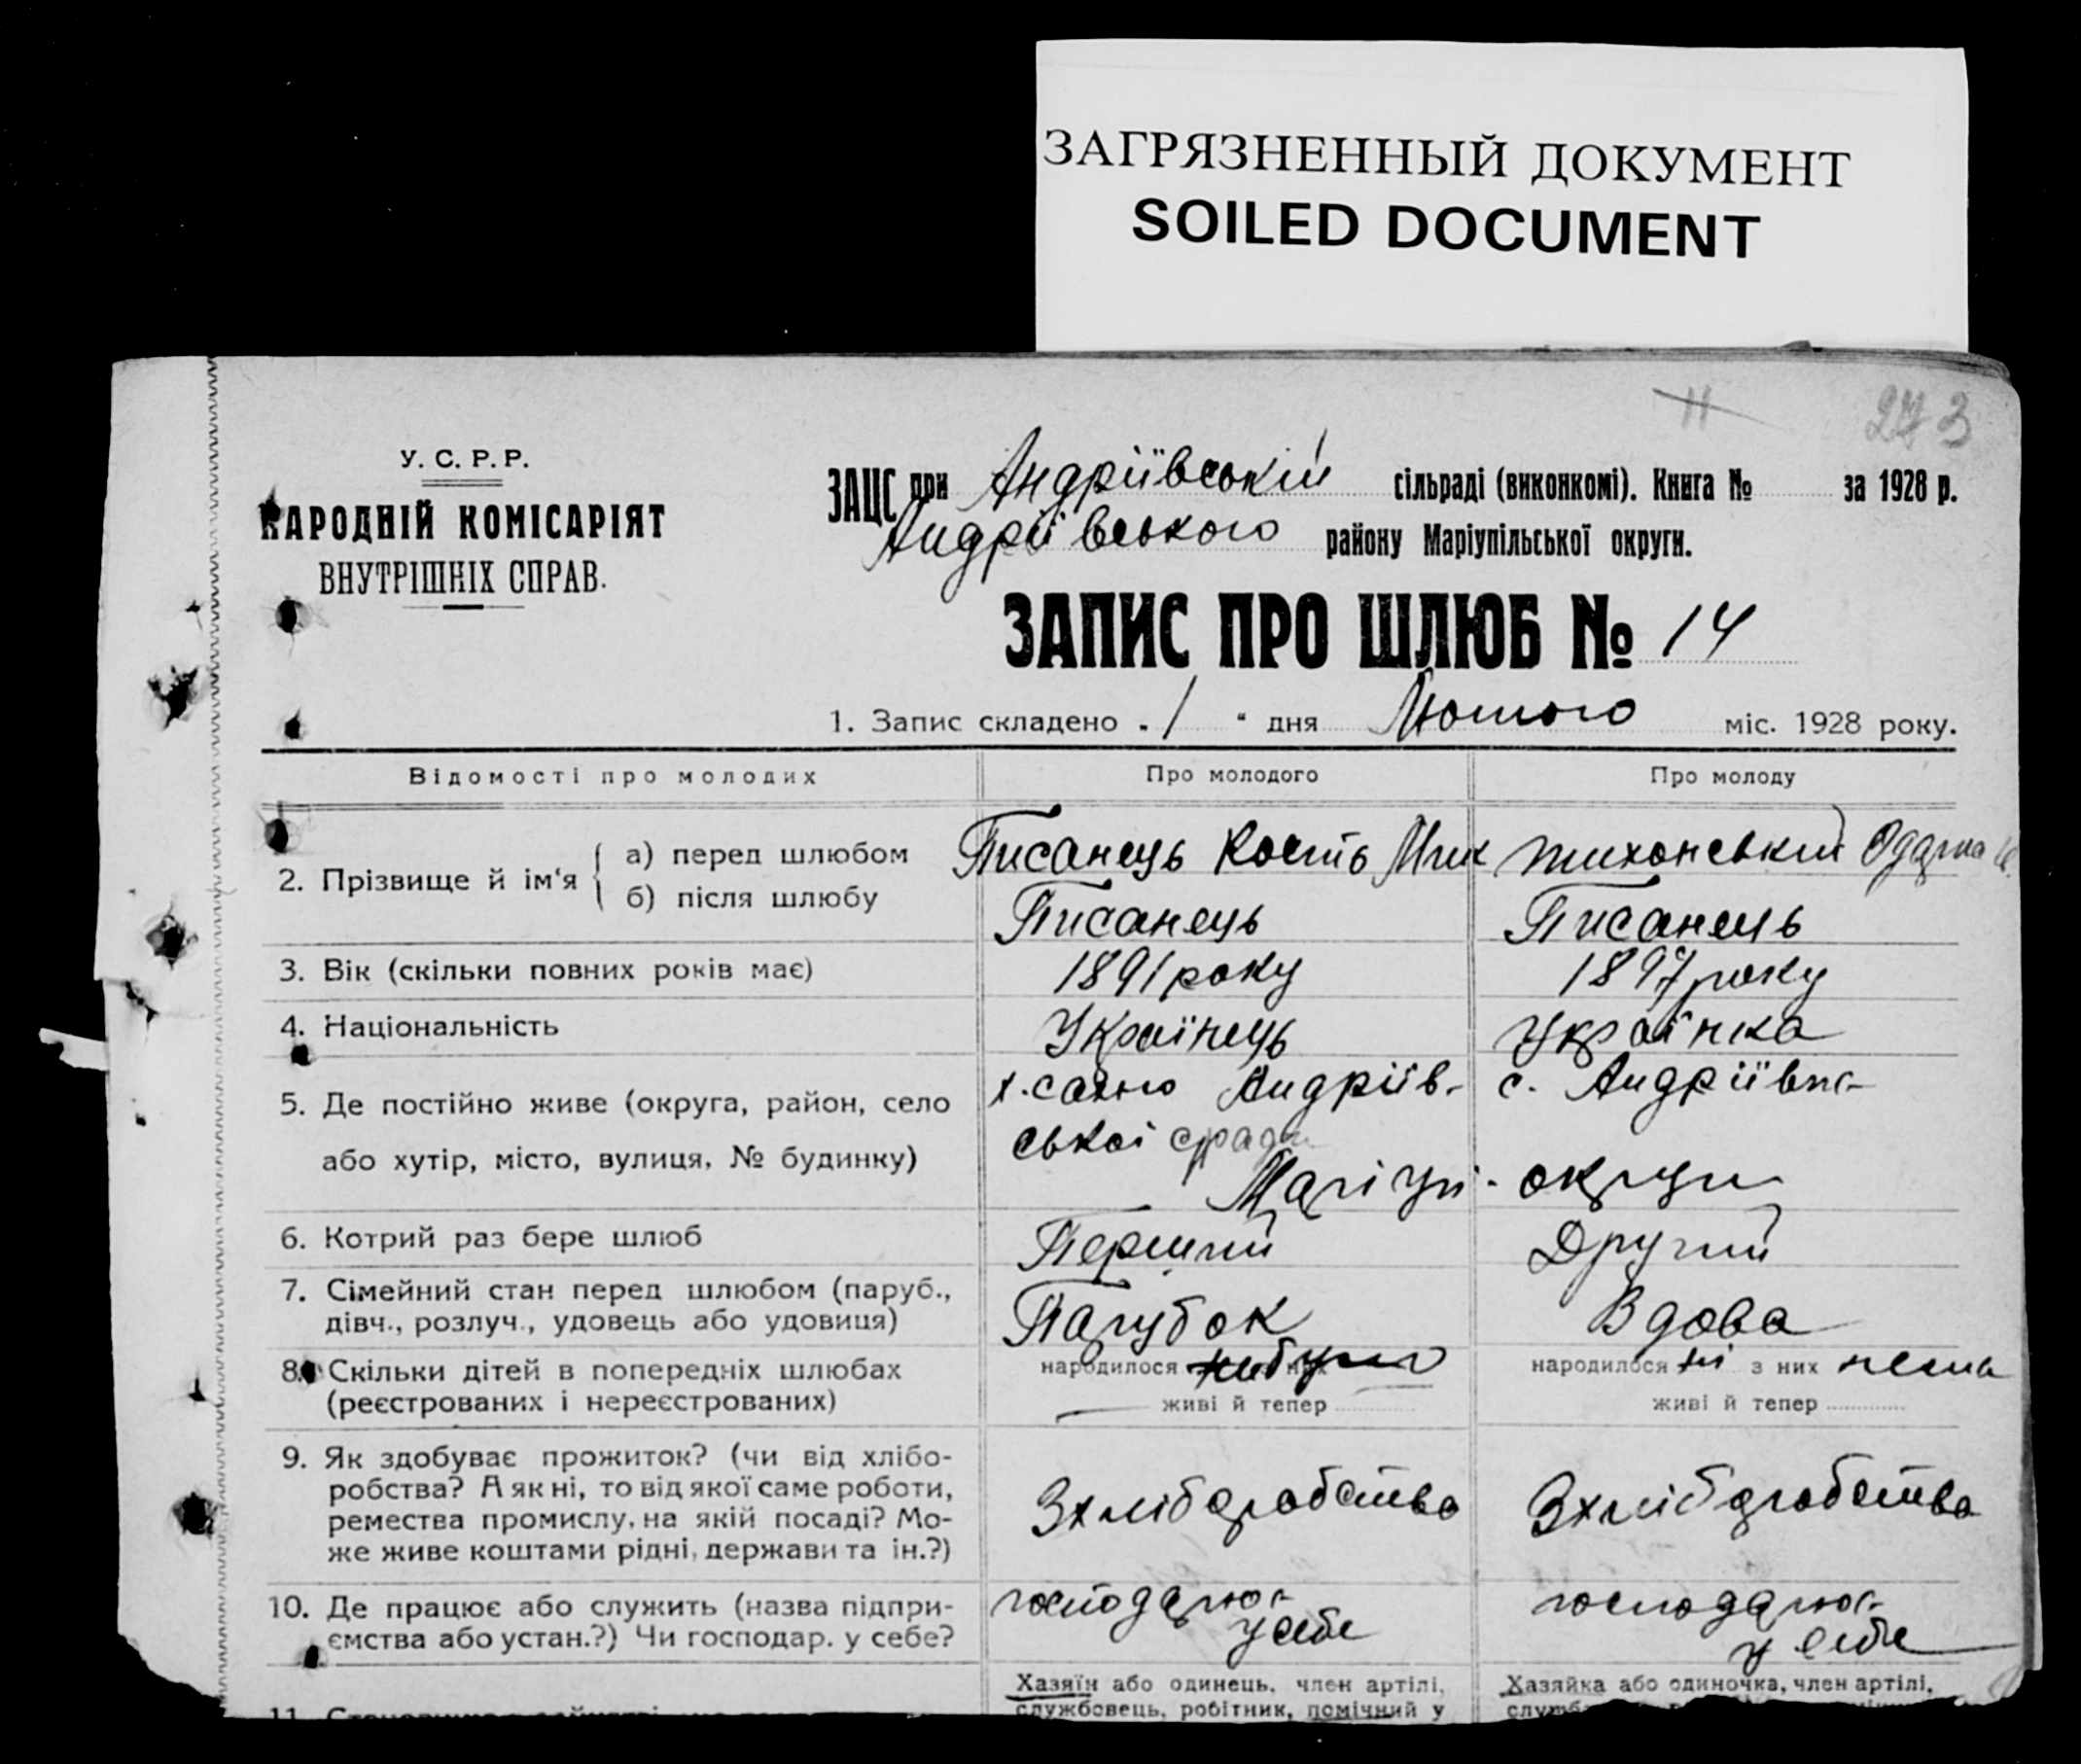 ЗАГРЯЗНЕННЫЙ ДОКУМЕНТ
SOILED DOCUMENT
11
273
У. С. Р. Р.
НАРОДНІЙ КОМІСАРІЯТ
ВНУТРІШНІХ СПРАВ.
ЗАЦС при Андріївській сільраді (виконкомі). Книга № за 1928 р.
Андріївського району Маріупільської округи.
ЗАПИС ПРО ШЛЮБ № 14
1. Запис складено „ 1 " дня Лютого міс. 1928 року.
Відомості про молодих
Про молодого
Про молоду
2. Прізвище й ім'я
а) перед шлюбом
Писанець Кость Мик
Тихонський Одарка
б) після шлюбу
Писанець
Писанець
3. Вік (скільки повних років має)
1891 року
1897 року
4. Національність
Українець
Українка
5. Де постійно живе (округа, район, село
або хутір, місто, вулиця, № будинку)
х. Андріїв-
ської с/ради
с. Андріївка
Маріуп. округи
6. Котрий раз бере шлюб
Перший
Другий
7. Сімейний стан перед шлюбом (паруб.,
дівч., розлуч., удовець або удовиця)
Парубок
Вдова
8. Скільки дітей в попередніх шлюбах
(реєстрованих і нереєстрованих)
народилося небуло
живі й тепер
народилося ні з них нема
живі й тепер
9. Як здобуває прожиток? (чи від хлібо-
робства? А як ні, то від якої саме роботи,
ремества промислу, на якій посаді? Мо-
же живе коштами рідні, держави та ін.?)
З хліборобства
З хліборобства
10. Де працює або служить (назва підпри-
ємства або устан.?) Чи господар. у себе?
господарює
у себе
господарює
у себе
Хазяїн або одинець, член артілі,
службовець, робітник, помічний у
Хазяйка або одиночка, член артілі,
11.